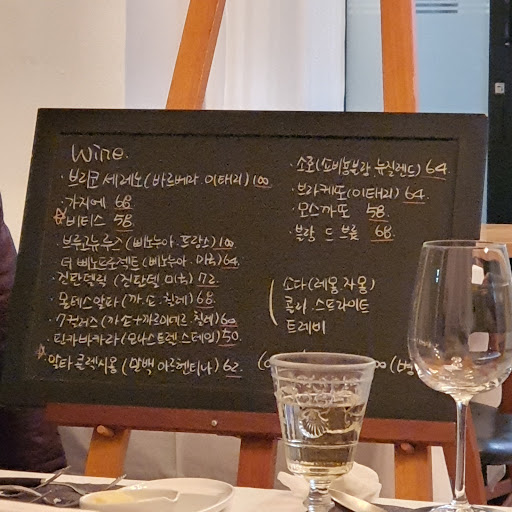 Wine.
· 브라코 세레노 (바르베라. 이태리) 100
· 가지에 68
☆ 비티스 58
· 부르고뉴 루스 (삐노누아. 프랑스) 100
· 더 삐노프로젝트 (삐노누아. 미국) 64
· 진판델릭 (진판델 미국) 72
· 몬테스알파 (까.쇼. 칠레) 68
· 7컬러스 (까쇼+까르미네르 칠레) 60
· 핀카바카라 (모나스트렐 스페인) 50
☆ 알타 콜렉시옹 (말벡 아르헨티나) 62
· 소론 (쇼비뇽블랑 뉴질랜드) 64
· 브라케토 (이태리) 64
· 모스까또 58
· 블랑 드 브룻 68
소다 (레몽 자몽)
콜라 스프라이트
트레비